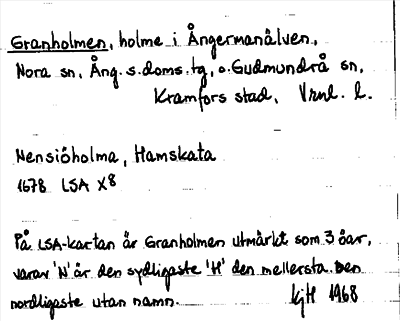 Granholmen, holme i Ångermanälven,
Nora sn, Ång. s. doms. tg, o. Gudmundrå sn,
Kramfors stad, Vrnl. l.
Nensiöholma, Hamskata
1678 LSA X8
På LSA-kartan är Granholmen utmärkt som 3 öar,
varav 'N' är den sydligaste 'H' den mellersta. Den
nordligaste utan namn. kjH 1968